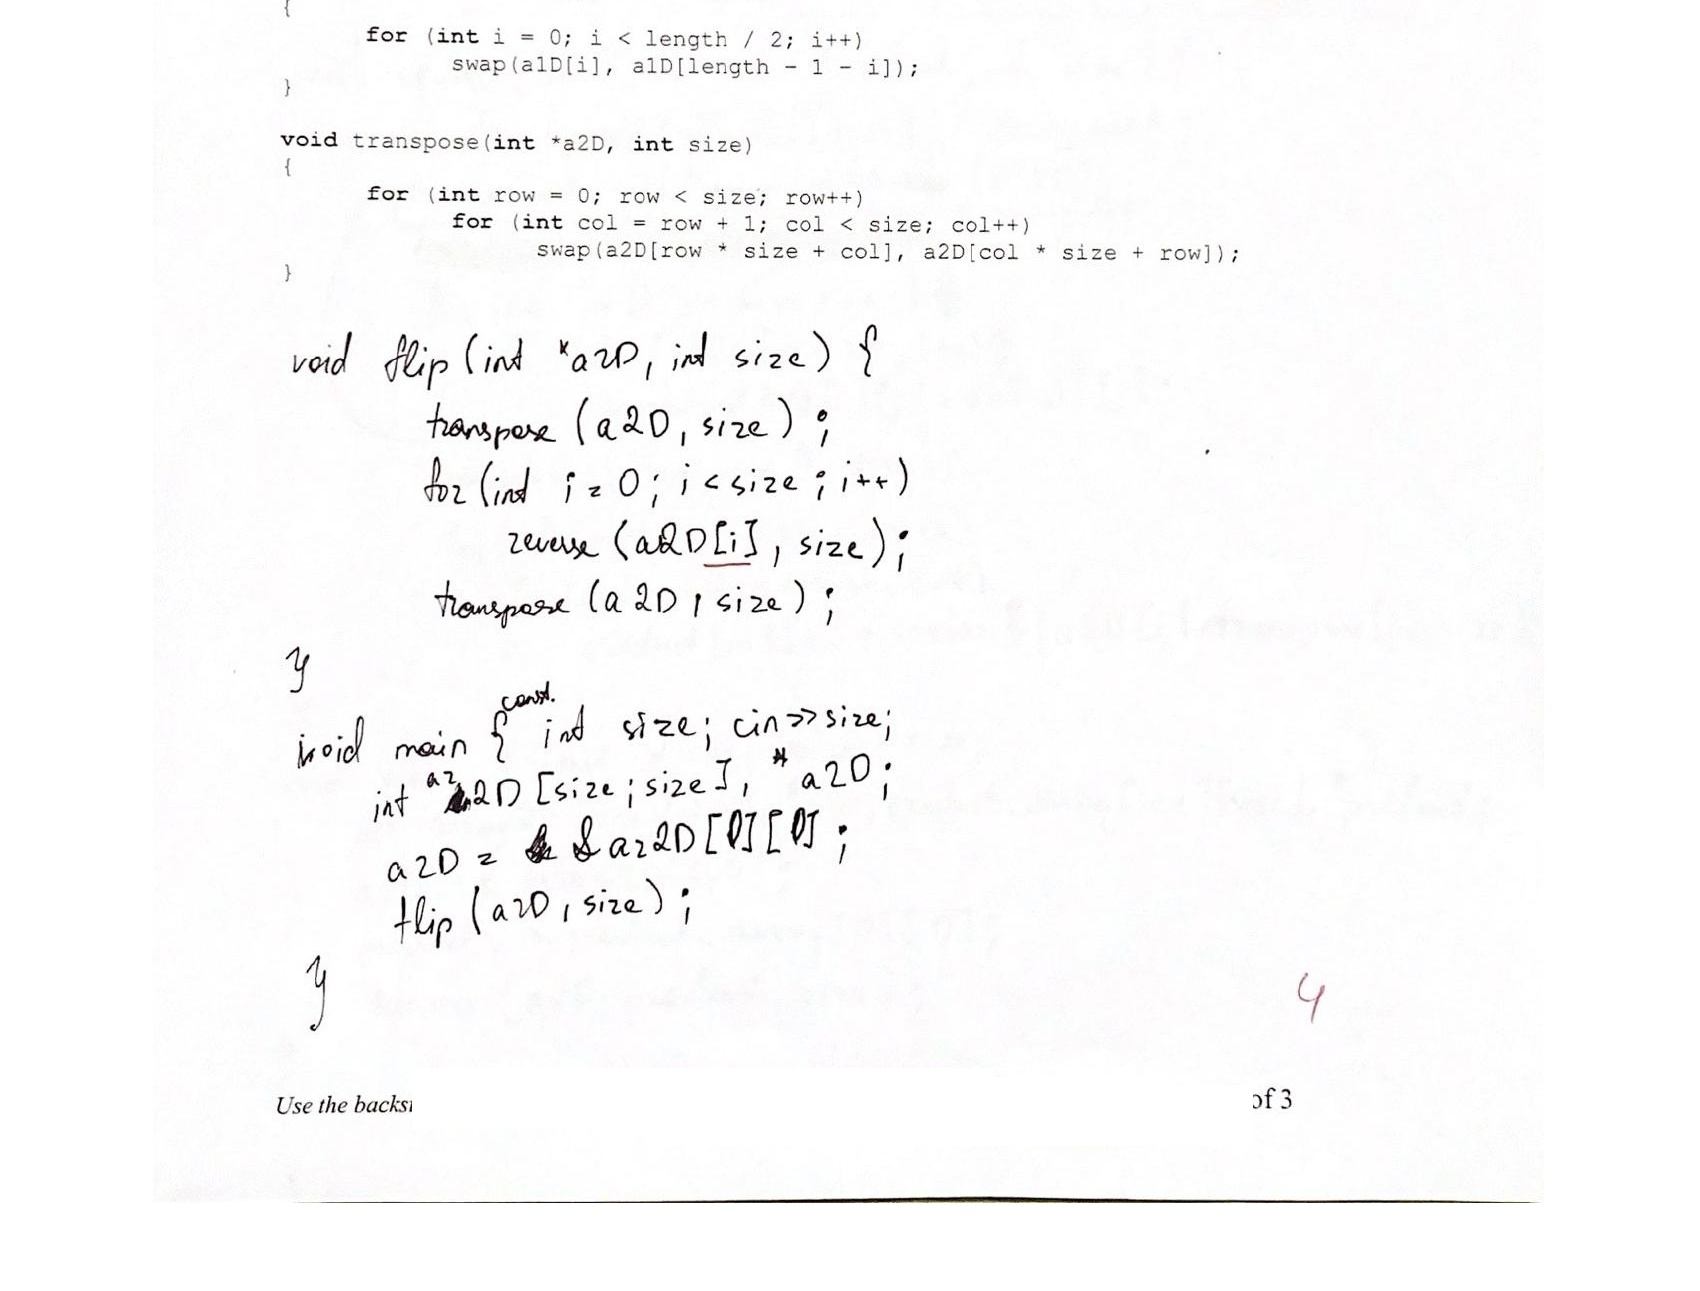 {
for (int i = 0; i < length / 2; i++)
swap(a1D[i], a1D[length - 1 - i]);
}
void transpose(int *a2D, int size)
{
for (int row = 0; row < size; row++)
for (int col = row + 1; col < size; col++)
swap(a2D[row * size + col], a2D[col * size + row]);
}
void flip(int *a2D, int size) {
transpose (a2D, size);
for (int i = 0; i < size; i++)
reverse (a2D[i], size);
transpose (a2D, size);
}
const.
void main { int size; cin>>size;
int az2D [size; size], *a2D;
a2D = &az2D[0][0];
flip (a2D, size);
}
4
Use the backsi
of 3